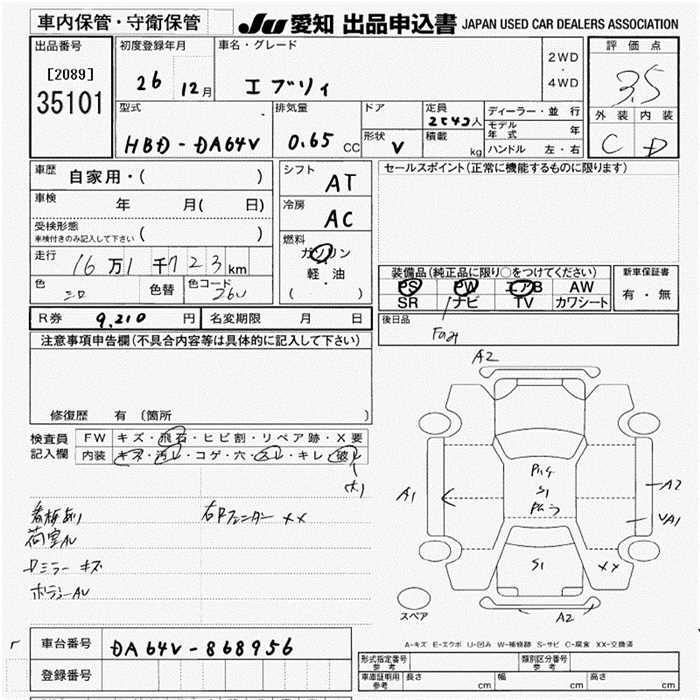 車内保管・守衛保管
JU 愛知 出品申込書 JAPAN USED CAR DEALERS ASSOCIATION
出品番号
[2089]
35101
初度登録年月
26 12月
車名・グレード
エブリィ
2WD
・
4WD
評価点
3.5
外装 内装
C D
型式
HBD-DA64V
排気量
0.65 CC
ドア
形状
V
定員
人
積載
kg
ディーラー・並行
モデル年式 年
ハンドル 左・右
車歴
自家用・( )
車検
年 月( 日)
受検形態
車検付きのみ記入して下さい ( )
走行
16万1千723km
色
色替
色コード
26U
シフト
AT
冷房
AC
燃料
ガソリン
軽・油
( )
セールスポイント(正常に機能するものに限ります)
装備品(純正品に限り○をつけてください)
PS PW エアB AW
SR ナビ TV カワシート
新車保証書
有・無
後日品
R券 9,210 円 名変期限 月 日
注意事項申告欄(不具合内容等は具体的に記入して下さい)
修復歴 有 (箇所 )
検査員
記入欄
FW キズ・飛石・ヒビ割・リペア跡・X要
内装 キズ・汚レ・コゲ・穴・スレ・キレ・破レ
大)
看板あり
右Fフェンダー XX
荷室AU
Dミラー キズ
ボデーAU
A2
A1
A2
VA1
S1
S1
XX
A2
スペア
A-キズ E-エクボ U-凹み W-補修跡 S-サビ C-腐食 XX-交換済
車台番号 DA64V-868956
登録番号
形式指定番号 参考
類別区分番号 参考
車庫証明用 参考 長さ cm 幅 cm 高さ cm